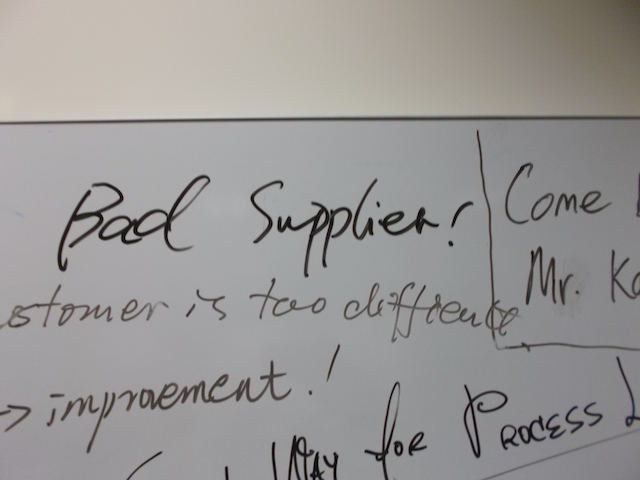 Bad Supplier!
stomer is too difficute
→ improvement!
Way for Process
Come
Mr. Ko